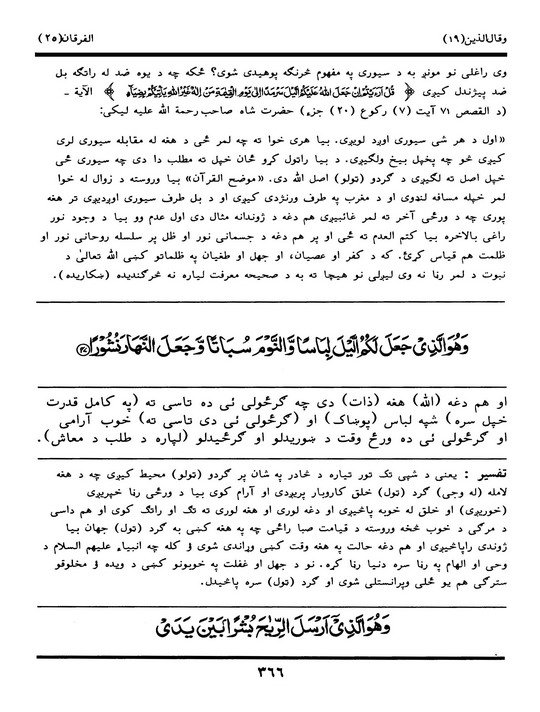 وقال‌الذین(۱۹) الفرقان(۲۵)
وی راغلی نو مونږ به د سیوری په مفهوم څرنگه پوهیدی شوی؟ ځکه چه د یوه ضد له راتگه بل
ضد پیژندل کیږی ﴿ قُلْ اَرَءَیْتُمْ اِنْ جَعَلَ اللّٰهُ عَلَیْكُمُ الَّیْلَ سَرْمَدًا اِلٰی یَوْمِ الْقِیٰمَةِ مَنْ اِلٰهٌ غَیْرُ اللّٰهِ یَاْتِیْكُمْ بِضِیَآءٍ ﴾ الآیة -
(د القصص ۷۱ آیت (۷) رکوع (۲۰) جزء) حضرت شاه صاحب رحمة الله علیه لیکی:
«اول د هر شی سیوری اوږد لویږی. بیا هری خوا ته چه لمر ځی د هغه له مقابله سیوری لری
کیږی څو چه پخپل بیخ ولگیږی. د بیا راتول کړو ځان خپل ته مطلب دا دی چه سیوری ځی
خپل اصل ته لگیږی د گردو (تولو) اصل الله دی. «موضح القرآن» بیا وروسته د زوال له خوا
لمر خپله مسافه لنډوی او د مغرب په طرف ورنژدی کیږی او د بل طرف سیوری اوږدیږی تر هغه
پوری چه د ورځی آخر ته لمر غائبیږی هم دغه د ژوندانه مثال دی اول عدم وو بیا د وجود نور
راغی بالاخره بیا کتم العدم ته ځی او پر هم دغه د جسمانی نور او ظل پر سلسله روحانی نور او
ظلمت هم قیاس کړئ. که د کفر او عصیان، او جهل او طغیان په ظلماتو کښی الله تعالیٰ د
نبوت د لمر رڼا نه وی لیږلی نو هیچا ته به د صحیحه معرفت لیاره نه څرگندیده (ښکاریده).
وَهُوَ الَّذِیْ جَعَلَ لَكُمُ الَّیْلَ لِبَاسًا وَّالنَّوْمَ سُبَاتًا وَّجَعَلَ النَّهَارَ نُشُوْرًا ﴿۴۷﴾
او هم دغه (الله) هغه (ذات) دی چه گرځولی ئی ده تاسی ته (په کامل قدرت
خپل سره) شپه لباس (پوښاک) او (گرځولی ئی دی تاسی ته) خوب آرامی
او گرځولی ئی ده ورځ وقت د خوریدلو او گرځیدلو (لپاره د طلب د معاش).
تفسیر : یعنی د شپی تک تور تیاره د څادر په شان پر گردو (تولو) محیط کیږی چه د هغه
لامله (له وجی) گرد (تول) خلق کاروبار پریږدی او آرام کوی بیا د ورځی رڼا خپریږی
(خوریږی) او خلق له خوبه پاڅیږی او دغه لوری او هغه لوری ته تگ او راتگ کوی او هم داسی
د مرگی د خوب څخه وروسته د قیامت صبا راځی چه په هغه کښی به گرد (تول) جهان بیا
ژوندی راپاڅیږی او هم دغه حالت په هغه وقت کښی وړاندی شوی ؤ کله چه انبیاء علیهم السلام د
وحی او الهام په رڼا سره دنیا رڼا کړه. نو د جهل او غفلت په خوبونو کښی د ویده ؤ مخلوقو
سترگی هم یو ځلی وپرانستلی شوی او گرد (تول) سره پاڅیدل.
وَهُوَ الَّذِیْۤ اَرْسَلَ الرِّیٰحَ بُشْرًۢا بَیْنَ یَدَیْ
۳۶۶